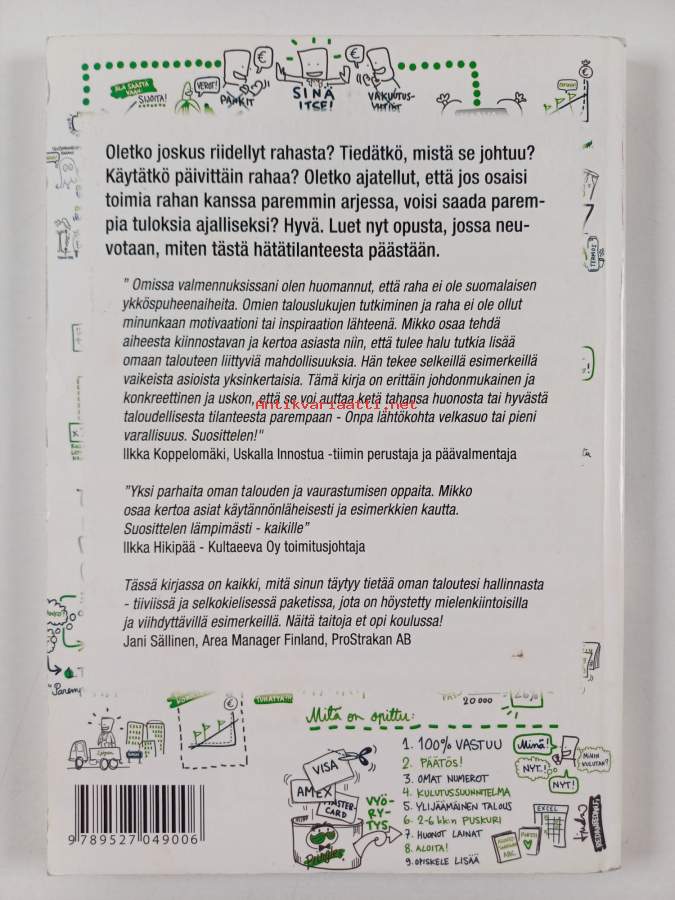 ÄLÄ SÄÄSTÄ VAAN
SIJOITA!
VEROT!
PANKIT
SINÄ ITSE!
VAKUUTUS-
YHTIÖT
Oletko joskus riidellyt rahasta? Tiedätkö, mistä se johtuu?
Käytätkö päivittäin rahaa? Oletko ajatellut, että jos osaisi
toimia rahan kanssa paremmin arjessa, voisi saada parem-
pia tuloksia ajalliseksi? Hyvä. Luet nyt opusta, jossa neu-
votaan, miten tästä hätätilanteesta päästään.
" Omissa valmennuksissani olen huomannut, että raha ei ole suomalaisen
ykköspuheenaiheita. Omien talouslukujen tutkiminen ja raha ei ole ollut
minunkaan motivaationi tai inspiraation lähteenä. Mikko osaa tehdä
aiheesta kiinnostavan ja kertoa asiasta niin, että tulee halu tutkia lisää
omaan talouteen liittyviä mahdollisuuksia. Hän tekee selkeillä esimerkeillä
vaikeista asioista yksinkertaisia. Tämä kirja on erittäin johdonmukainen ja
konkreettinen ja uskon, että se voi auttaa ketä tahansa huonosta tai hyvästä
Antikvariaatti.net
taloudellisesta tilanteesta parempaan - Onpa lähtökohta velkasuo tai pieni
varallisuus. Suosittelen!"
Ilkka Koppelomäki, Uskalla Innostua -tiimin perustaja ja päävalmentaja
"Yksi parhaita oman talouden ja vaurastumisen oppaita. Mikko
osaa kertoa asiat käytännönläheisesti ja esimerkkien kautta.
Suosittelen lämpimästi - kaikille"
Ilkka Hikipää - Kultaeeva Oy toimitusjohtaja
Tässä kirjassa on kaikki, mitä sinun täytyy tietää oman taloutesi hallinnasta
- tiiviissä ja selkokielisessä paketissa, jota on höystetty mielenkiintoisilla
ja viihdyttävillä esimerkeillä. Näitä taitoja et opi koulussa!
Jani Sällinen, Area Manager Finland, ProStrakan AB
20 000
Mitä on opittu:
1. 100% VASTUU
2. PÄÄTÖS!
3. OMAT NUMEROT
4. KULUTUSSUUNNITELMA
5. YLIJÄÄMÄINEN TALOUS
6. 2-6 kk:n PUSKURI
7. HUONOT LAINAT
8. ALOITA!
9. OPISKELE LISÄÄ
Minä!
NYT!
NYT!
MIHIN KULUTAN?
EXCEL
ABC
VISA
AMEX
MASTER-
CARD
VYÖ-
RY-
TYS
9 789527 049006